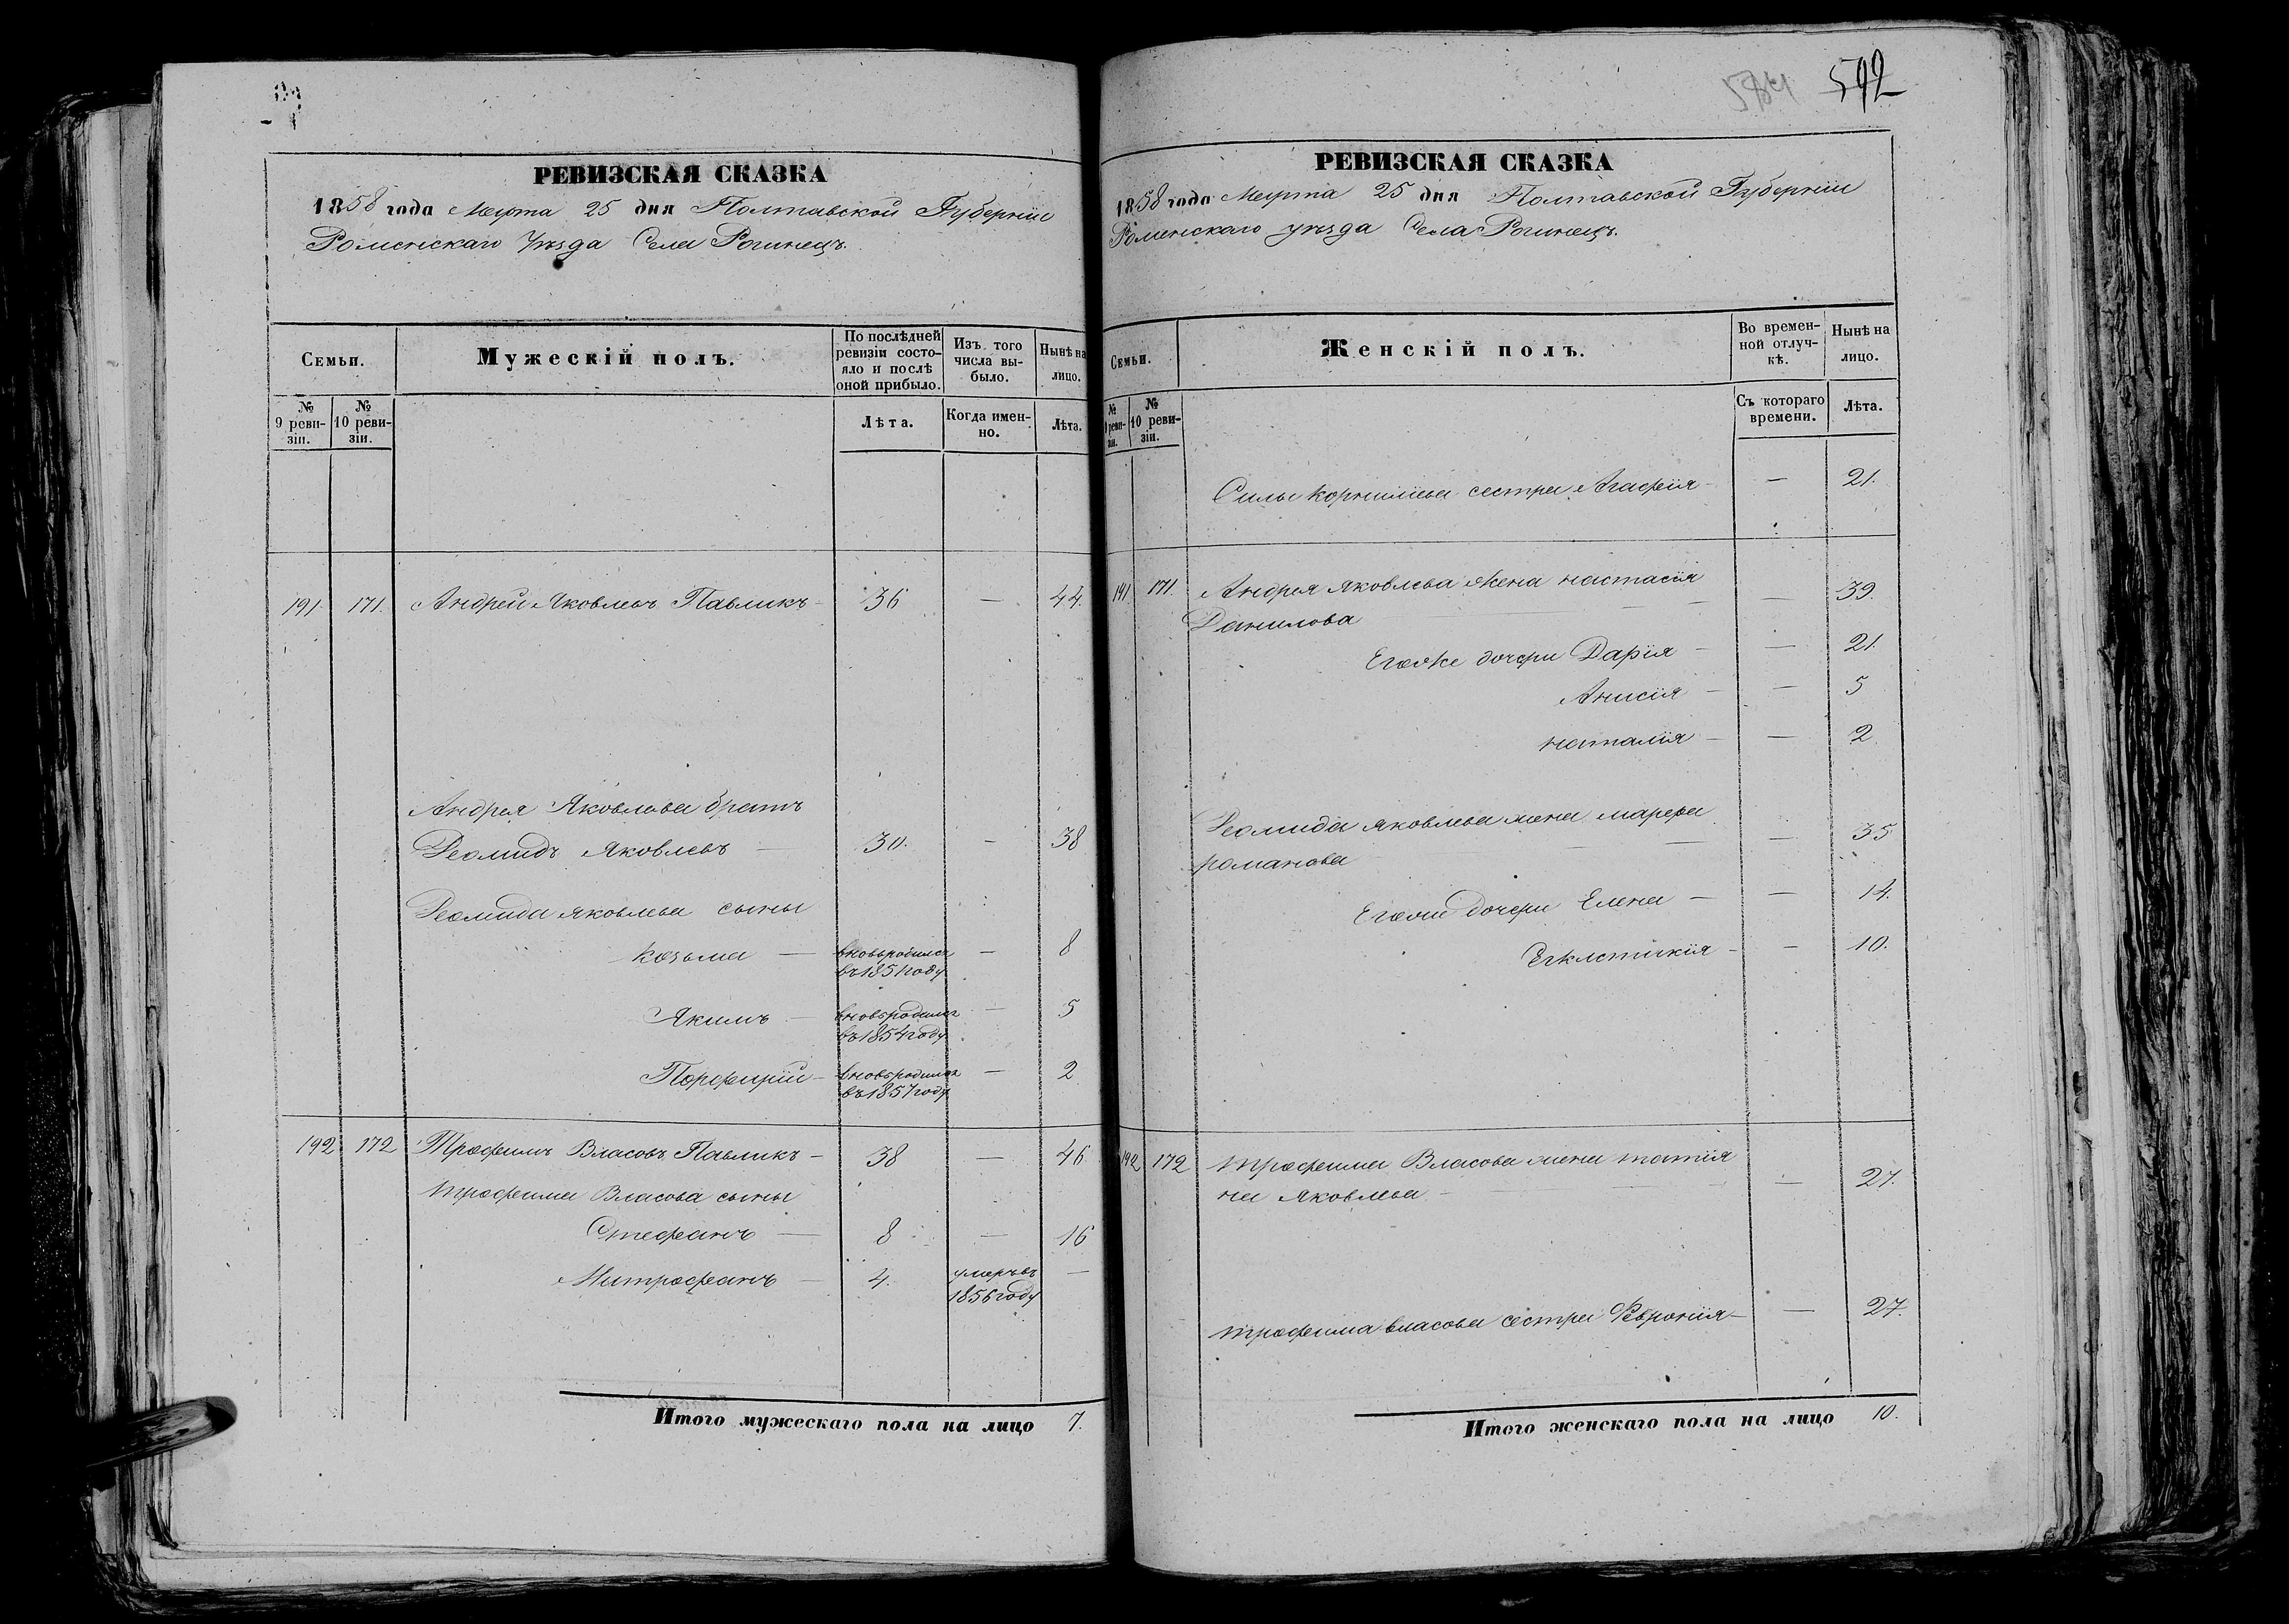 РЕВИЗСКАЯ СКАЗКА
1858 года Марта 25 дня Полтавской Губерніи
Роменскаго Уѣзда Села Рогинецъ.
Семьи.
Мужескій полъ.
По послѣдней ревизіи состояло и послѣ оной прибыло.
Изъ того числа выбыло.
Нынѣ на лицо.
№ 9 ревизіи.
№ 10 ревизіи.
Лѣта.
Когда именно.
Лѣта.
191 171. Андрей Яковлевъ Павликъ 36 — 44.
Андрея Яковлева братъ
Деомидъ Яковлевъ — 30. — 38
Деомида яковлева сыны
козьма — вновьродился въ1851году — 8
Якимъ — вновьродился въ1854году — 5
Порфирій — вновьродился въ1857году — 2
192 172 Трофимъ Власовъ Павликъ — 38 — 46
трофима Власова сыны
Стефанъ — 8 — 16
Митрофанъ — 4. умеръвъ 1856году —
Итого мужескаго пола на лицо 7.
592
РЕВИЗСКАЯ СКАЗКА
1858 года Марта 25 дня Полтавской Губерніи
Роменскаго уѣзда Села Рогинецъ.
Семьи.
Женскій полъ.
Во временной отлучкѣ.
Нынѣ на лицо.
№ 9 ревизіи.
№ 10 ревизіи.
Съ котораго времени.
Лѣта.
Силы корнилiева сестра Агафiя — — 21.
191 171. Андрея яковлева жена настасiя
Данилова — 39.
Егоже дочери Дарiя — — 21.
Анисiя — — 5
наталiя — — 2
Деомида яковлева жена марфа
романова — 35
Егоже дочери Елена — — 14.
— — 10.
192 172 трофима Власова жена татiя
на яковлева — — 27.
трофима власова сестра Феврониiя — — 27.
Итого женскаго пола на лицо 10.